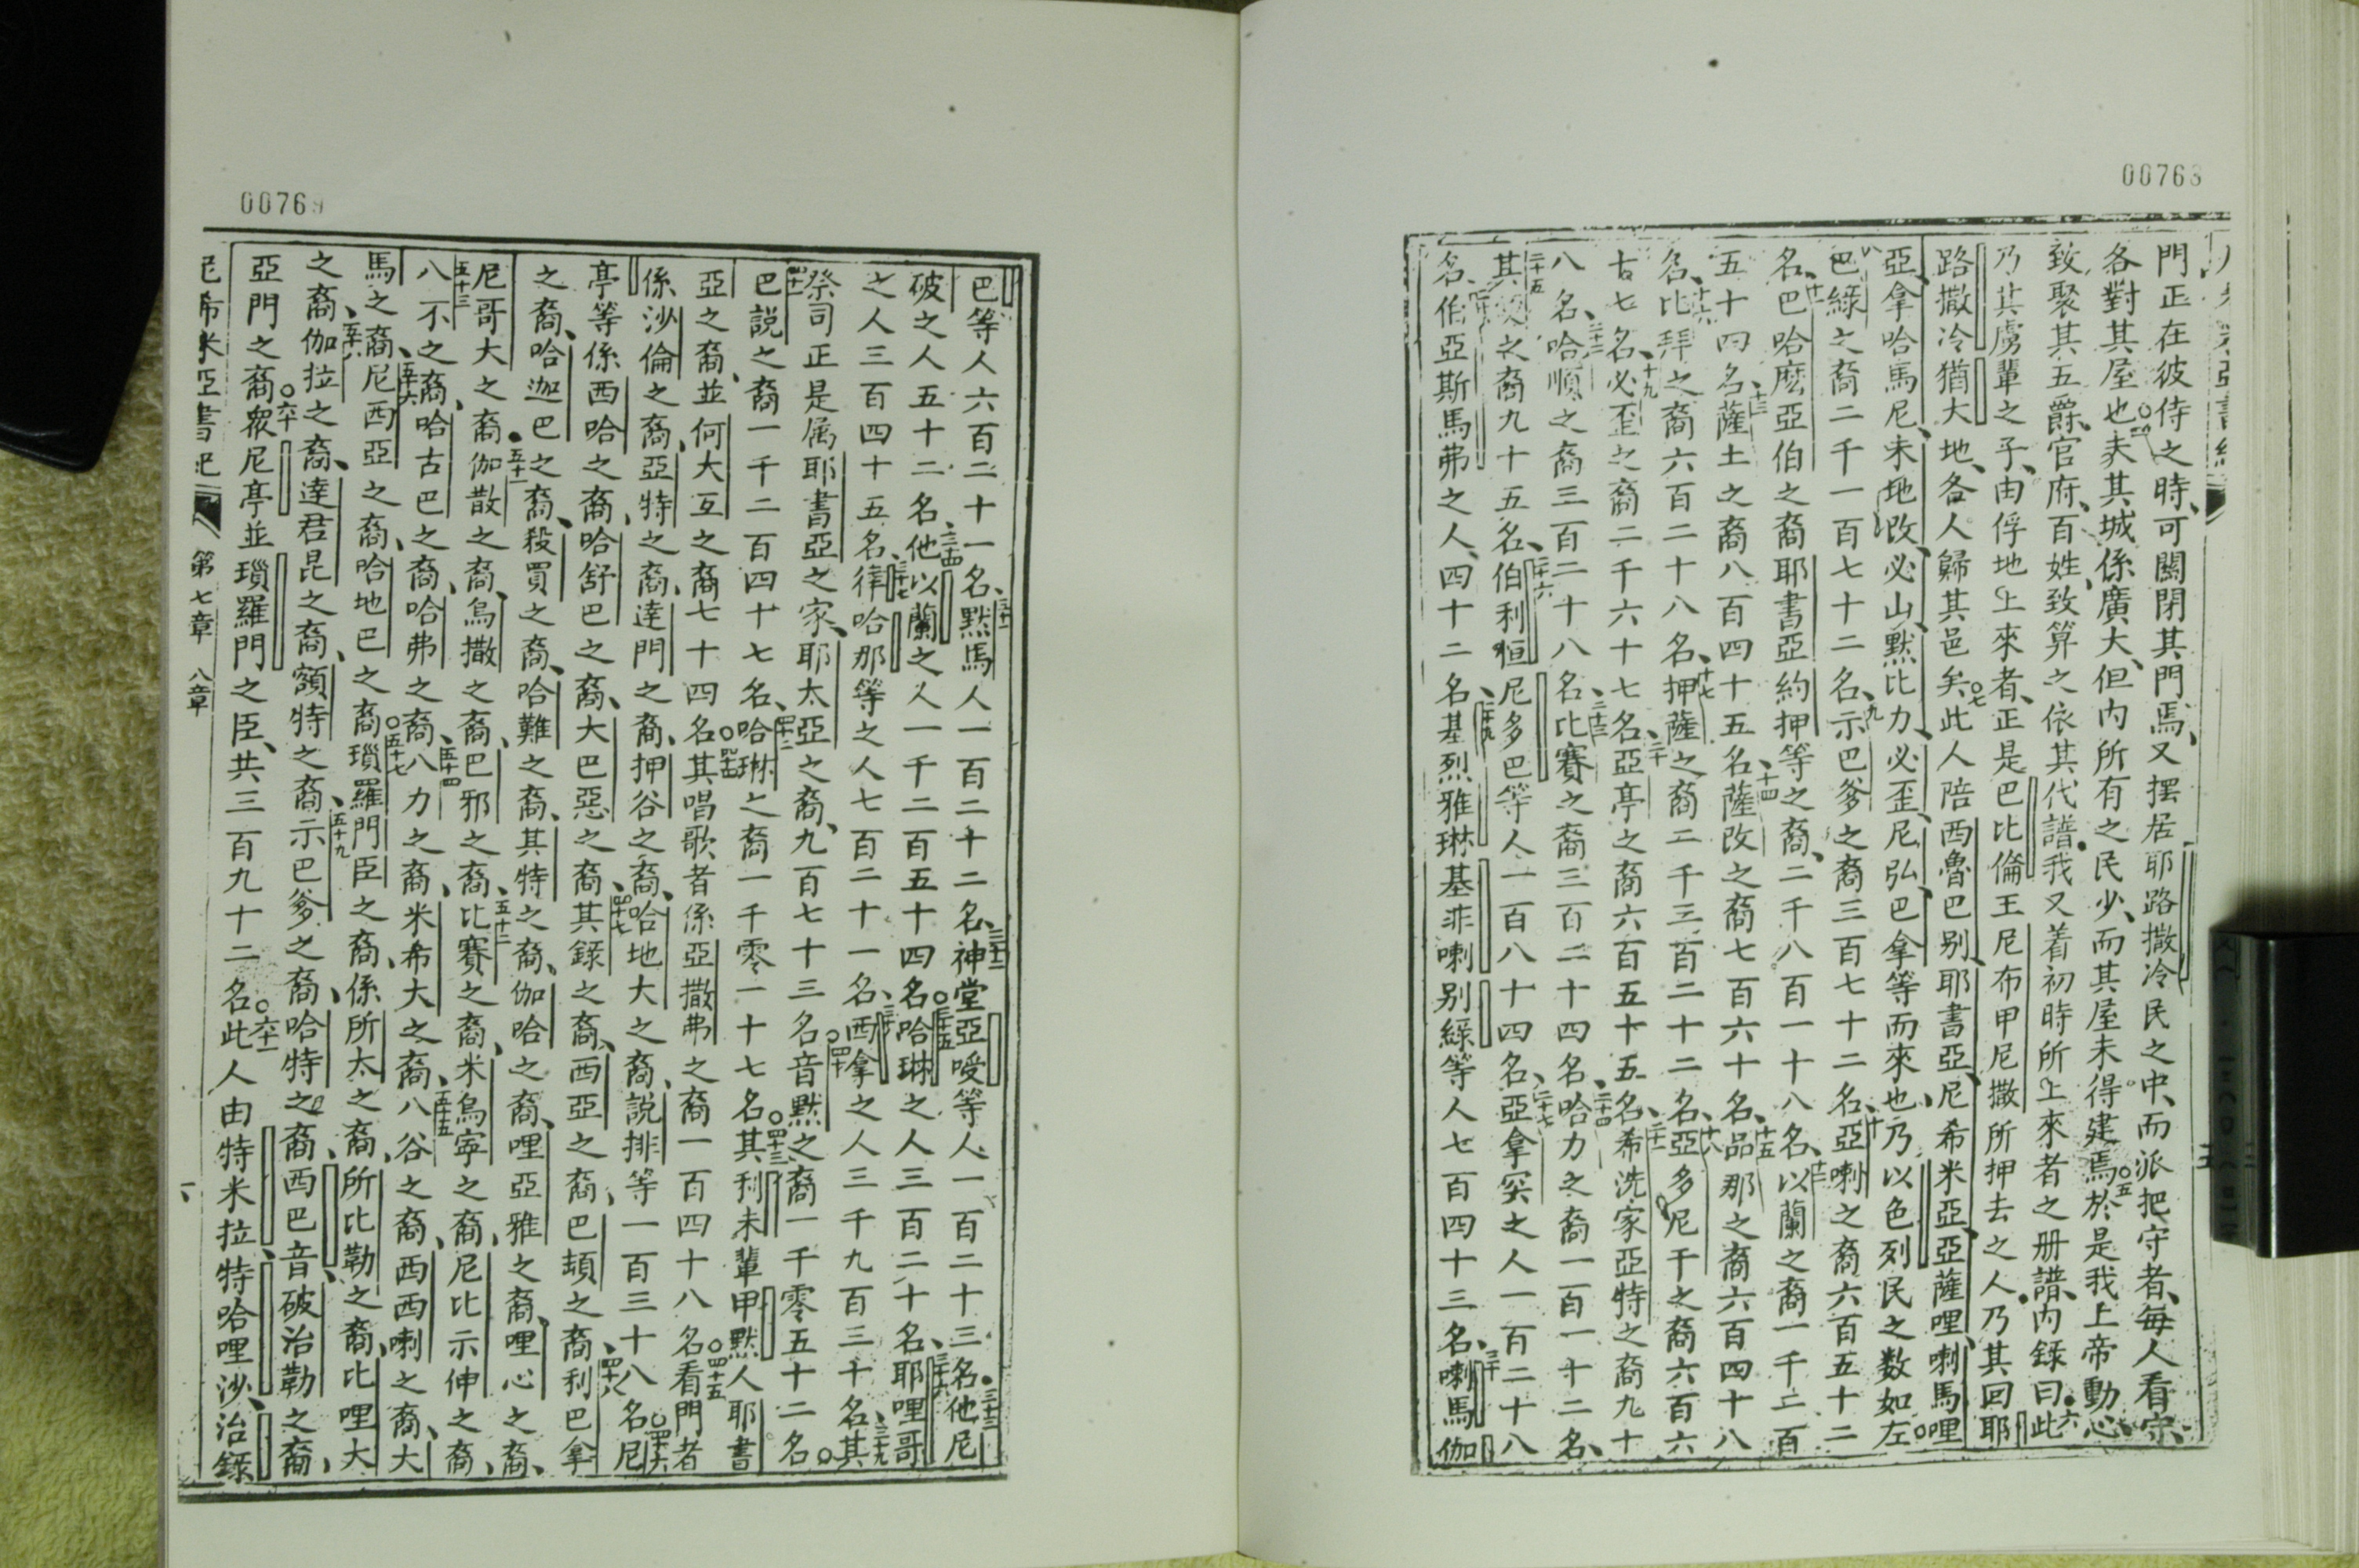 00768
門正在彼侍之時、可關閉其門焉、又擺居耶路撒冷民之中、而派把守者、每人看守、
各對其屋也○四夫其城係廣大、但内所有之民少、而其屋未得建焉○五於是我上帝動心、
致聚其五爵、官府、百姓、致算之依其代譜、我又着初時所上來者之册譜、内錄曰、六此
乃其虜輩之子、由俘地上來者、正是巴比倫王尼布甲尼撒所押去之人、乃其回耶
路撒冷猶大地、各人歸其邑矣○七此人陪西魯巴别、耶書亞、尼希米亞、亞薩哩、喇馬哩
亞、拿哈馬尼、未地改、必山、黙比力、必歪、尼弘、巴拿等而來也、乃以色列民之数如左○
八巴綠之裔二千一百七十二名、九示巴爹之裔三百七十二名、十亞喇之裔六百五十二
名、十一巴哈麽亞伯之裔耶書亞約押等之裔、二千八百一十八名、十二以蘭之裔一千二百
五十四名、十三薩土之裔八百四十五名、十四薩改之裔七百六十名、十五品那之裔六百四十八
名、十六比拜之裔六百二十八名、十七押薩之裔二千三百二十二名、十八亞多尼干之裔六百六
十七名、十九必歪之裔二千六十七名、二十亞亭之裔六百五十五名、二十一希洗家亞特之裔九十
八名、二十二哈順之裔三百二十八名、二十三比賽之裔三百二十四名、二十四哈力之裔一百一十二名、
二十五其之裔九十五名、二十六伯利恒尼多巴等人一百八十四名、二十七亞拿突之人一百二十八
名、伯亞斯馬弗之人、四十二名、二十九基烈雅琳基非喇别綠等人七百四十三名、三十喇馬伽
00769
巴等人六百二十一名、三十一黙馬人一百二十二名、三十二神堂亞嗳等人一百二十三名、三十三名他尼
破之人五十二名、三十四他以蘭之人一千二百五十四名○三十五哈琳之人三百二十名、三十六耶哩哥
之人三百四十五名、三十七律哈那等之人七百二十一名、三十八西拿之人三千九百三十名、三十九其
祭司正是属耶書亞之家、耶太亞之裔、九百七十三名○四十音黙之裔一千零五十二名○
四十一巴説之裔一千二百四十七名、四十二哈琳之裔一千零一十七名○四十三其利未輩甲黙人耶書
亞之裔並何大互之裔七十四名○四十四其唱歌者係亞撒弗之裔一百四十八名○四十五看門者
係沙倫之裔、亞特之裔、達門之裔、押谷之裔、哈地大之裔、説排等一百三十八名○四十六尼
亭等係西哈之裔、哈舒巴之裔、大巴惡之裔、四十七其錄之裔、西亞之裔、巴頓之裔、四十八利巴拿
之裔、哈迦巴之裔、殺買之裔、哈難之裔、其特之裔、伽哈之裔、哩亞雅之裔、哩心之裔、
尼哥大之裔、五十一伽散之裔、烏撒之裔、巴邪之裔、五十二比賽之裔、米烏寧之裔、尼比示伸之裔、
五十三八不之裔、哈古巴之裔、哈弗之裔、五十四八力之裔、米希大之裔、五十五八谷之裔、西西喇之裔、大
馬之裔、五十六尼西亞之裔、哈地巴之裔○五十七瑣羅門臣之裔、係所太之裔、所比勒之裔、比哩大
之裔、五十八伽拉之裔、達君昆之裔、額特之裔、五十九示巴爹之裔、哈特之裔、西巴音破治勒之裔、
亞門之裔○六十衆尼亭並瑣羅門之臣、共三百九十二名○六十一此人由特米拉特哈哩沙、治錄
尼希米亞書 第七章 八章